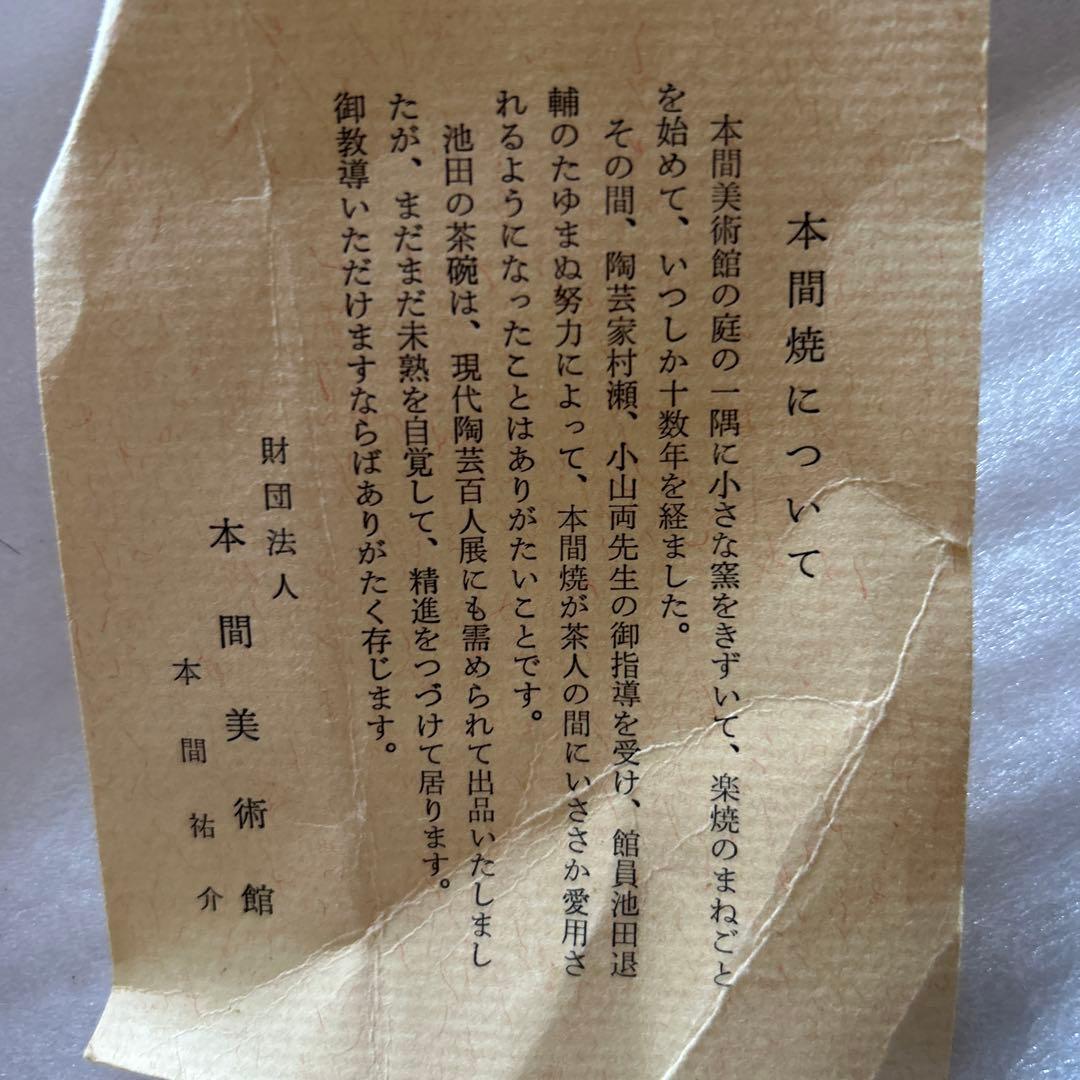 本間焼について
本間美術館の庭の一隅に小さな窯をきずいて、楽焼のまねごと
を始めて、いつしか十数年を経ました。
その間、陶芸家村瀬、小山両先生の御指導を受け、館員池田退
輔のたゆまぬ努力によって、本間焼が茶人の間にいささか愛用さ
れるようになったことはありがたいことです。
池田の茶碗は、現代陶芸百人展にも需められて出品いたしまし
たが、まだまだ未熟を自覚して、精進をつづけて居ります。
御教導いただけますならばありがたく存じます。
財団法人
本間美術館
本間祐介